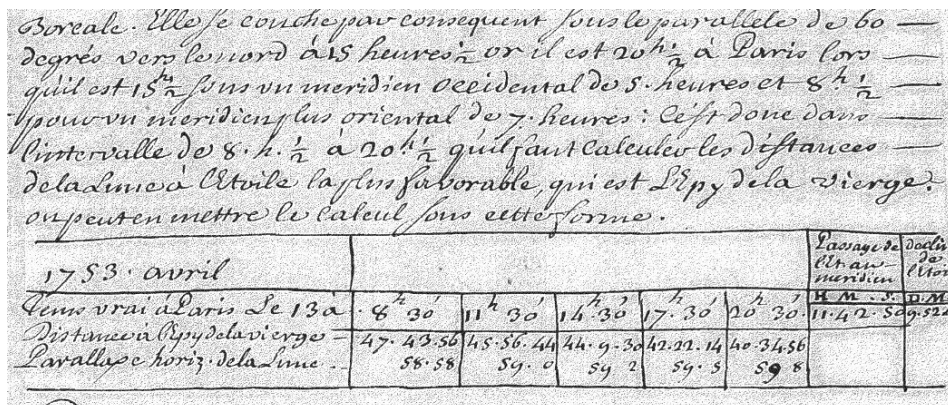 Boreale. Elle se couche par consequent sous le parallele de 60 —
degrés vers le nord à 15 heures ½ or il est 20ʰ ½ à Paris lors —
qu'il est 15ʰ ½ sous un meridien occidental de 5. heures et 8ʰ. ½ —
pour un meridien plus oriental de 7. heures: C'est donc dans —
l'intervalle de 8. h. ½ à 20ʰ ½ qu'il faut Calculer les distances —
de la Lune à l'Etoile la plus favorable, qui est L'Epy de la vierge.
on peut en mettre le Calcul sous cette forme.
1753. avril Passage de l'Et. au meridien declin de l'Eto
H. M. S. D. M
Tems vrai à Paris Le 13 à . 8ʰ 30' 11ʰ 30' 14. 30' 17. 30' 20ʰ 30'. 11. 42. 50 9. 52
Distance à l'Epy de la vierge — 47. 43. 56 45. 56. 44 44. 9. 30 42. 22. 14 40. 34. 56
Parallaxe horiz. de la Lune .. 58. 58 59. 0 59 2 59. 5 59 8